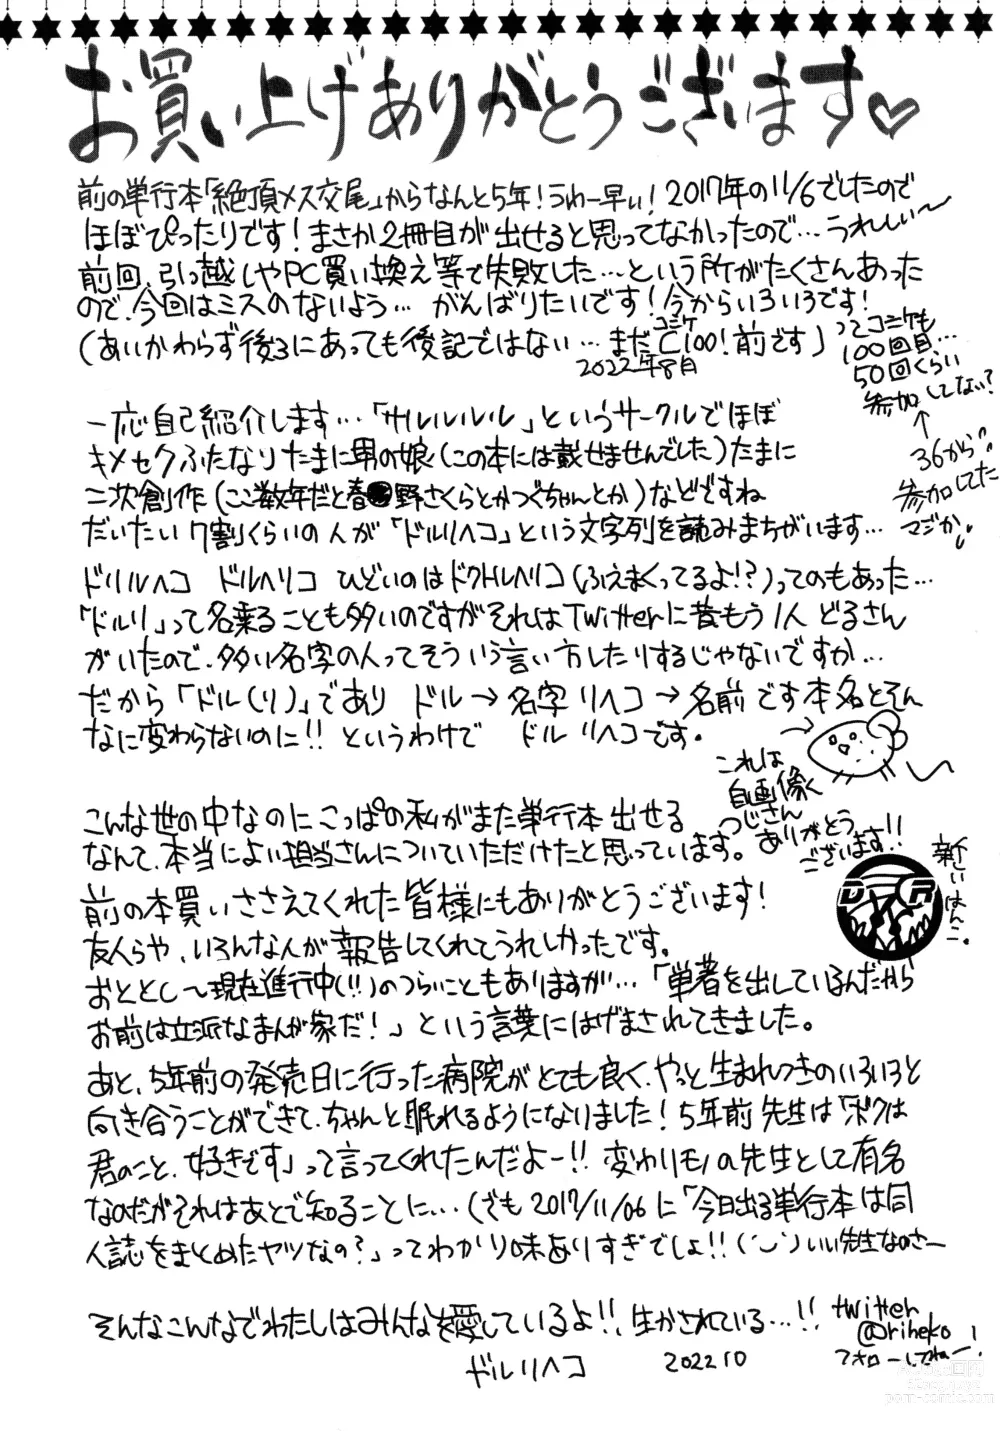 お買い上げありがとうございます♡
前の単行本「絶頂メス交尾」からなんと5年！うわー早い！2017年の11/6でしたので
ほぼぴったりです！まさか2冊目が出せると思ってなかったので…うれしい〜
前回、引っ越しやPC買い換え等で失敗した…という所がたくさんあった
ので、今回はミスのないよう… がんばりたいです！今からいろいろです！
(あいかわらず後ろにあっても後記ではない…まだC100！前です)
コミケ
2022年8月
ってコミケも
100回目…
50回くらい
参加してない？
36から
参加してた
マジか
一応自己紹介します…「サルルルルル」というサークルでほぼ
キメセクふたなりたまに男の娘(この本には載せませんでした)たまに
二次創作(ここ数年だと春●野さくらとかつぐちゃんとか)などですね
だいたい7割くらいの人が「ドルリヘコ」という文字列を読みまちがいます…
ドリルヘコ ドルヘリコ ひどいのはドクトルヘリコ(ふえまくってるよ!?)ってのもあった…
「ドルリ」って名乗ることも多いのですがそれはTwitterに昔もう1人どるさん
がいたので、多い名字の人ってそういう言い方したりするじゃないですか…
だから「ドル(リ)」であり ドル→名字 リヘコ→名前です本名とそん
なに変わらないのに!! というわけで ドルリヘコです。
これは
自画像く
つじさん
ありがとう
ございます!!
こんな世の中なのにこっぱの私がまた単行本出せる
なんて、本当によい担当さんについていただけたと思っています。
新しいはんこ。
D R
前の本買いささえてくれた皆様にもありがとうございます！
友人らや、いろんな人が報告してくれてうれしかったです。
おととし〜現在進行中(!!)のつらいこともありますが…「単著を出しているんだから
お前は立派なまんが家だ！」という言葉にはげまされてきました。
あと、5年前の発売日に行った病院がとても良く、やっと生まれつきのいろいろと
向き合うことができて、ちゃんと眠れるようになりました！5年前先生は「ボクは
君のこと、好きです」って言ってくれたんだよー!! 変わりモノの先生として有名
なのだがそれはあとで知ることに…(でも2017/11/06に「今日出る単行本は同
人誌をまとめたヤツなの？」ってわかり味ありすぎでしょ!!(´ー`)いい先生なのさー
そんなこんなでわたしはみんなを愛しているよ!!、生かされている…!!
twitter
@riheko
フォローしてねー！
ドルリヘコ 202210